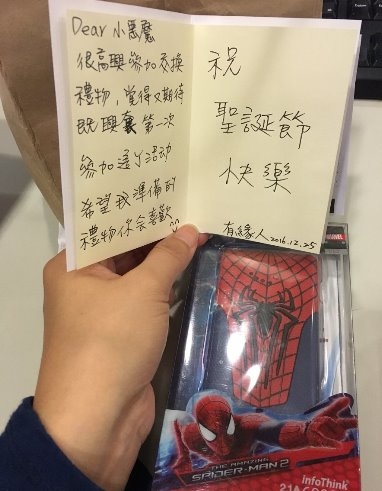 Dear 小惡魔
很高興參加交換
禮物，覺得又期待
既興奮 第一次
參加這丫活动
希望我準備的
禮物你会喜歡
祝
聖誕節
快樂
有緣人 2016.12.25
MARVEL
THE AMAZING
SPIDER-MAN 2
InfoThink